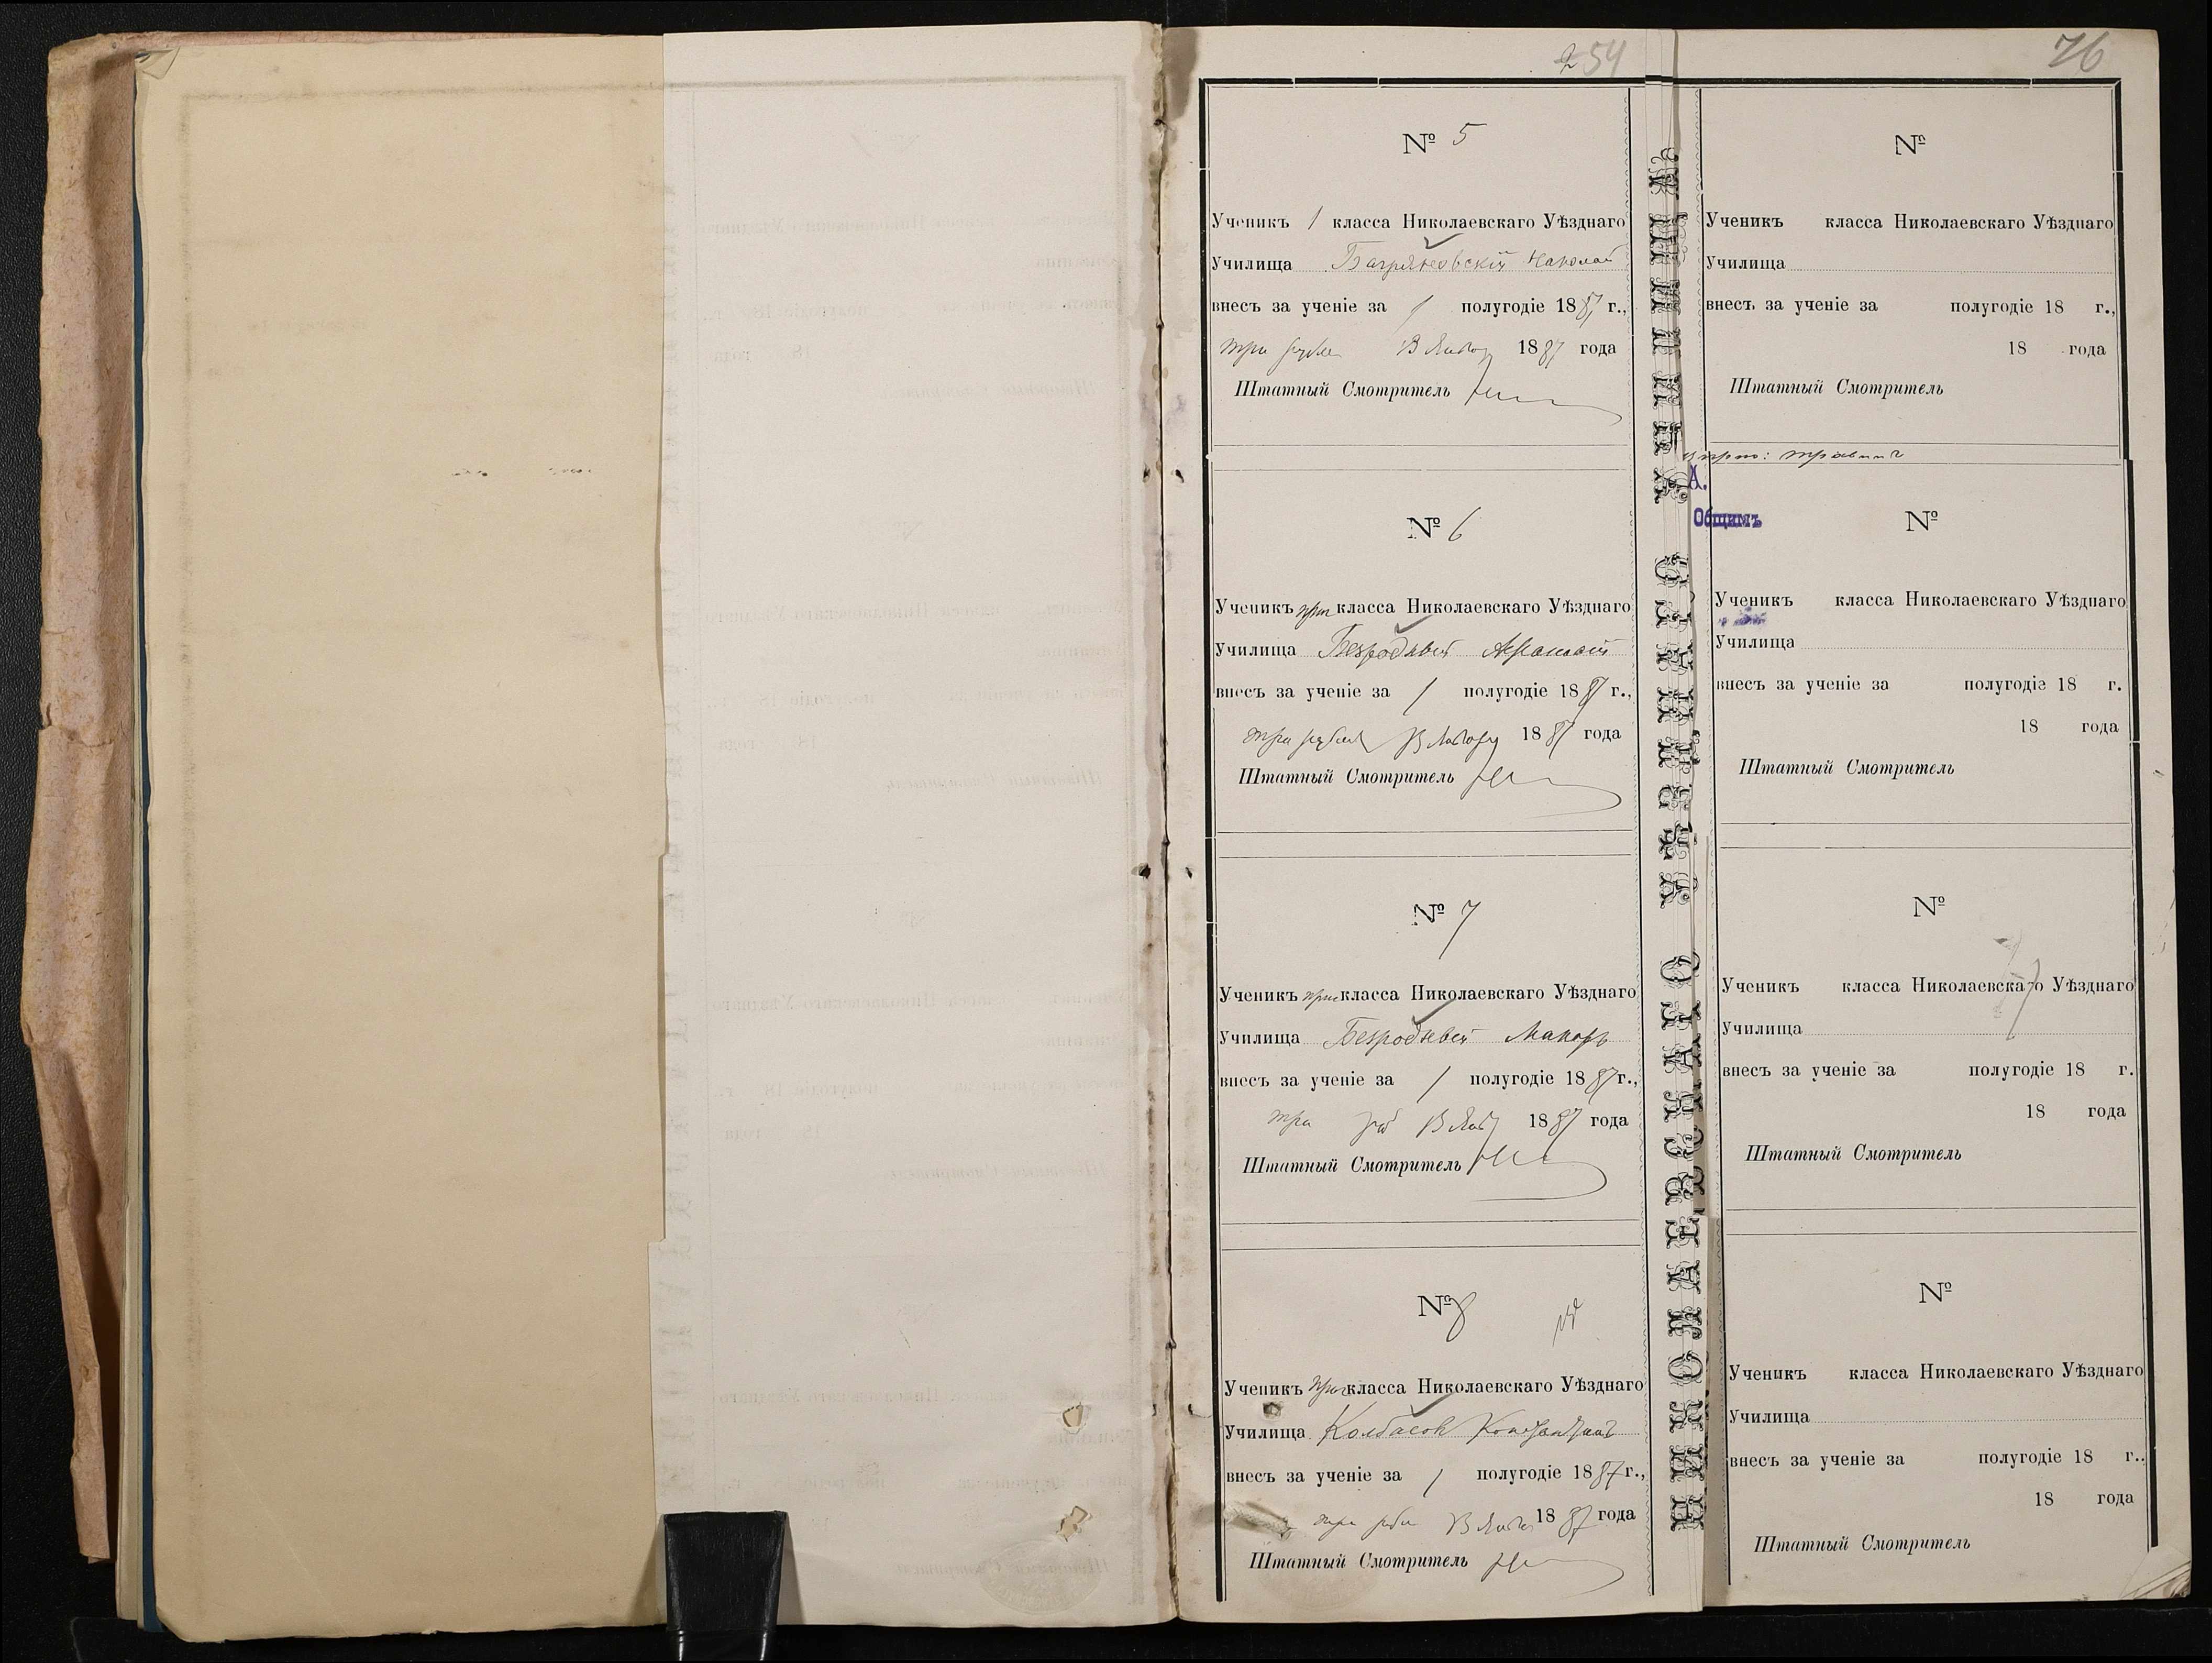 254
76
№ 5
Ученикъ 1 класса Николаевскаго Уѣзднаго
Училища Багряновскій Николай
внесъ за ученіе за 1 полугодіе 1887 г.,
три рубля 1887 года
Штатный Смотритель
№ 6
Ученикъ при класса Николаевскаго Уѣзднаго
Училища Безродный
внесъ за ученіе за 1 полугодіе 1887 г.,
три рубля 1887 года
Штатный Смотритель
№ 7
Ученикъ при класса Николаевскаго Уѣзднаго
Училища Безродный Макаръ
внесъ за ученіе за 1 полугодіе 1887 г.,
три руб 1887 года
Штатный Смотритель
№ 8
Ученикъ при класса Николаевскаго Уѣзднаго
Училища Колбасов Константинъ
внесъ за ученіе за 1 полугодіе 1887 г.,
три руб 1887 года
Штатный Смотритель
№
Ученикъ класса Николаевскаго Уѣзднаго
Училища
внесъ за ученіе за полугодіе 18 г.,
18 года
Штатный Смотритель
А.
Общимъ
№
Ученикъ класса Николаевскаго Уѣзднаго
Училища
внесъ за ученіе за полугодіе 18 г.
18 года
Штатный Смотритель
№
Ученикъ класса Николаевскаго Уѣзднаго
Училища
внесъ за ученіе за полугодіе 18 г.
18 года
Штатный Смотритель
№
Ученикъ класса Николаевскаго Уѣзднаго
Училища
внесъ за ученіе за полугодіе 18 г..
18 года
Штатный Смотритель